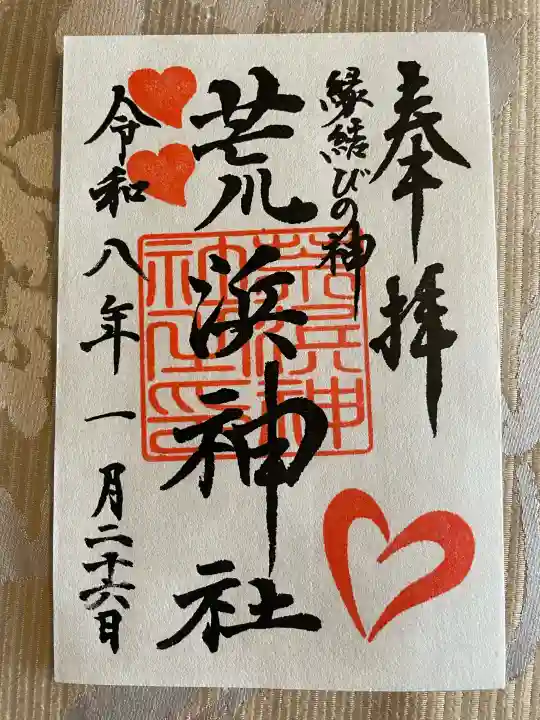 奉拝
縁結びの神
荒浜神社
荒浜神社之印
令和八年一月二十六日